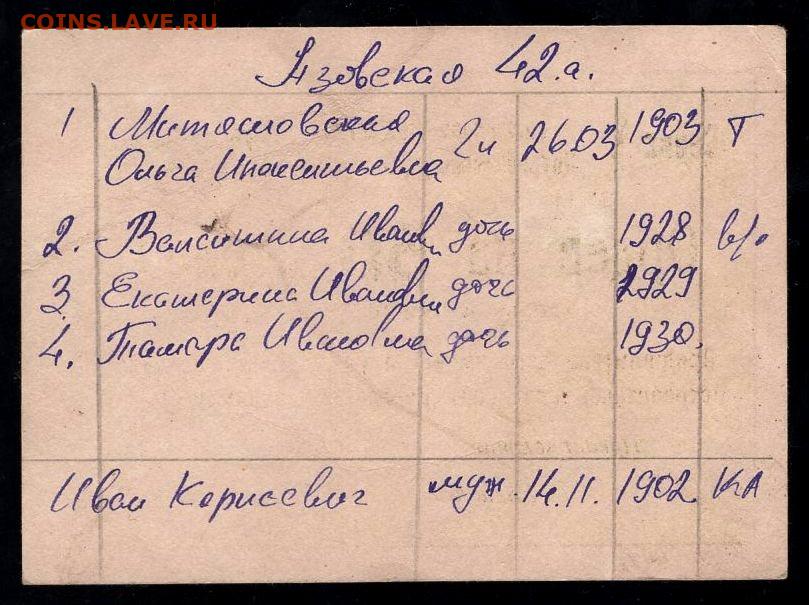 COINS.LAVE.RU
Азовская 42.а.
1 Митасловская
Ольга Инокентьевна 2и 26.03 1903 Т
2. Валентина Ивановн дочь 1928 в/о
3. Екатерина Ивановн дочь 1929
4. Тамара Ивановна дочь 1930.
Иван Корнеевич муж. 14.11. 1902 КА